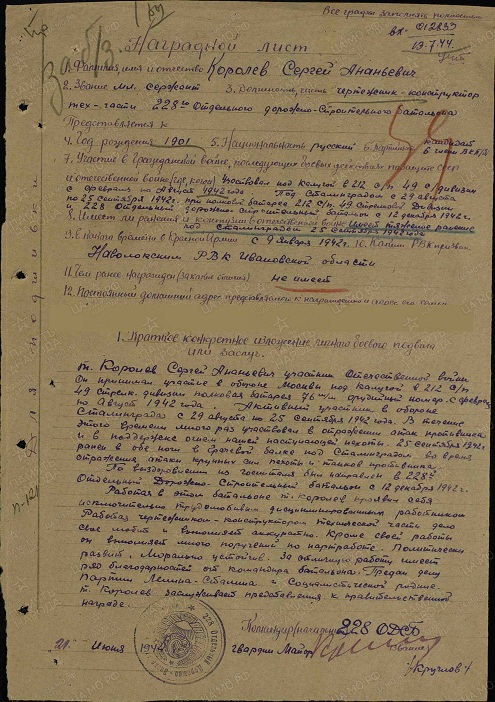 Все графы заполнять полностью
Вх- 012833
19.7.44.
Наградной лист
1. Фамилия, имя и отчество Королев Сергей Ананьевич
2. Звание мл. сержант 3. Должность, часть чертежник-конструктор
тех-части 228го Отдельного дорожно-Строительного батальона
Представляется к
4. Год рождения 1901 5. Национальность русский 6. Партийность кандидат
в члены ВКП(б)
7. Участие в гражданской войне, последующих боевых действиях по защите СССР
и отечественной войне (где, когда) Участвовал под Калугой в 212 с/п 49 с/дивизии
с февраля по Август 1942 года. Под Сталинградом с 29 августа
по 25 Сентября 1942 г. при полковой батарее 212 с/п. 49 стрелковой дивизии
и 228 Отдельном дорожно строительном батальоне с 12 декабря 1942 г.
8. Имеет ли ранения и контузии в отечественной войне имеет тяжелое ранение
под Сталинградом 25 сентября 1942 года
9. С какого времени в Красной Армии с 9 января 1942 г. 10. Каким РВК призван
Наволокским РВК Ивановской области
11. Чем ранее награжден (за какие отличия) не имеет
12. Постоянный домашний адрес представляемого к награждению и адрес его семьи
1. Краткое конкретное изложение личного боевого подвига
или заслуг.
т. Королев Сергей Ананьевич участник Отечественной войны
Он принимал участие в обороне Москвы под Калугой в 212 с/п
49 стрелк. дивизии полковая батарея 76 м/м орудийный номер. с февраля
по Август 1942 года. Активный участник в обороне
Сталинграда с 29 августа по 25 Сентября 1942 года. В течение
этого времени много раз участвовал в отражении атак противника
и в поддержке огнем нашей наступающей пехоты. 25 сентября 1942 г
ранен в обе ноги в балке под Сталинградом во время
отражения атаки крупных сил пехоты и танков противника.
По выздоровлении из госпиталя был направлен в 228й
Отдельный Дорожно-Строительный батальон с 12 декабря 1942 г.
Работая в этом батальоне т. Королев проявил себя
исключительно трудолюбивым дисциплинированным работником
Работая чертежником-конструктором технической части дело
свое любит и выполняет аккуратно. Кроме своей работы
он выполняет много поручений по партработе. Политически
развит, Морально устойчив. За отличную работу имеет
ряд благодарностей от командира батальона. Предан делу
Партии Ленина-Сталина и Социалистической родине
т. Королев заслуживает представления к правительственной
награде.
Командир (начальник) 228 ОДСБ
гвардии Майор
/Круглов/
21 Июня 1944